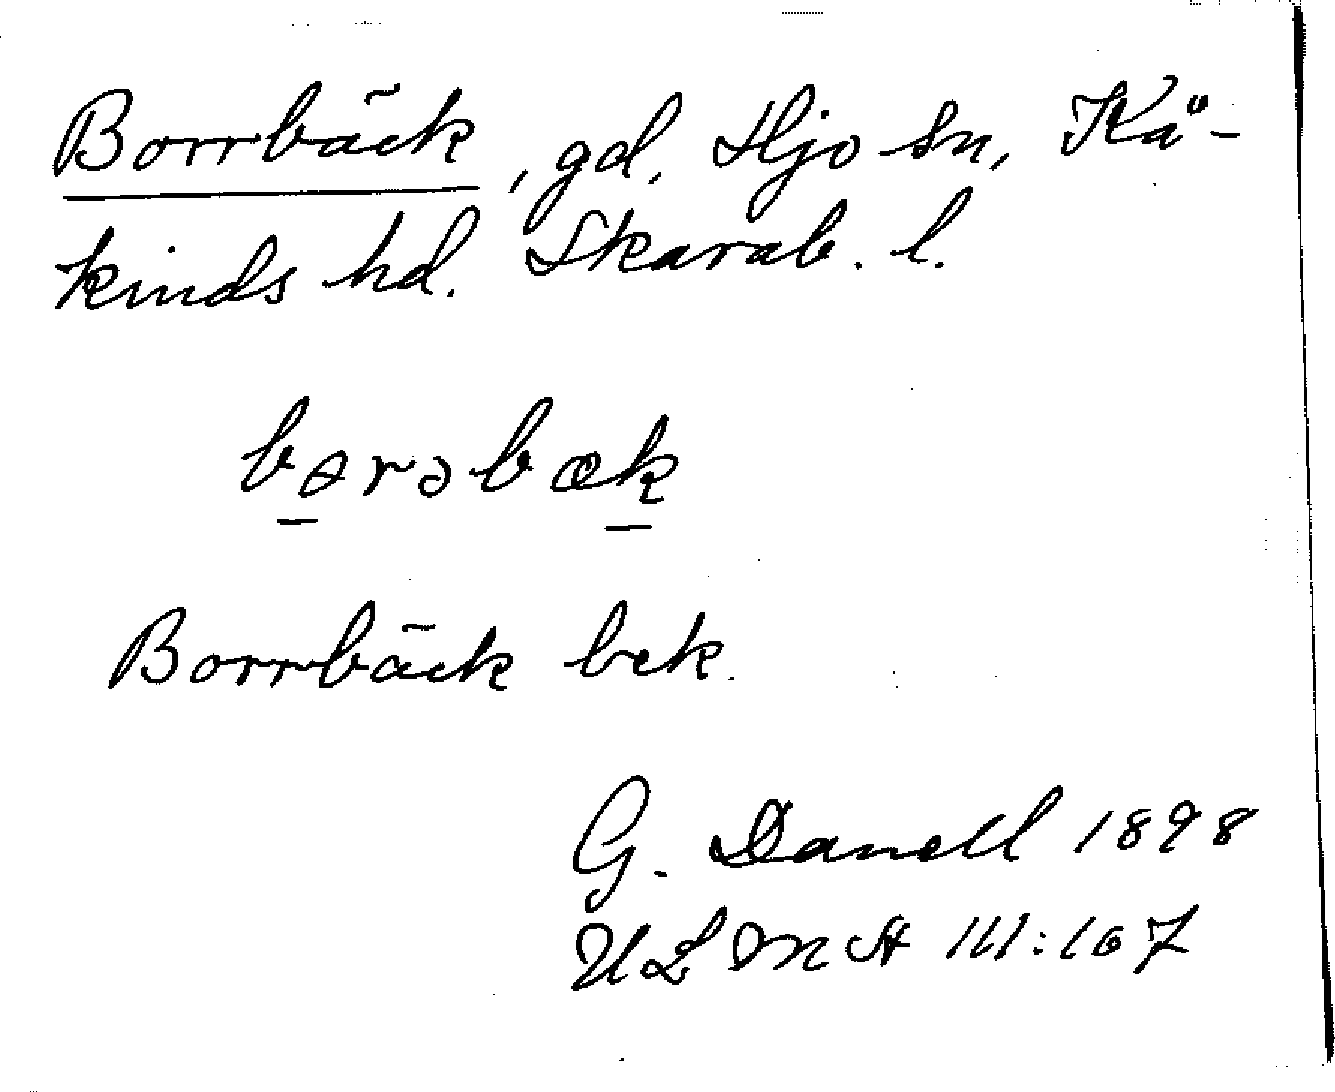 Borrbäck, gd, Hjo sn, Kå-
kinds hd. Skarab. l.
bɵrəbæk
Borrbäck bek.
G. Danell 1898
ULMA 111:107